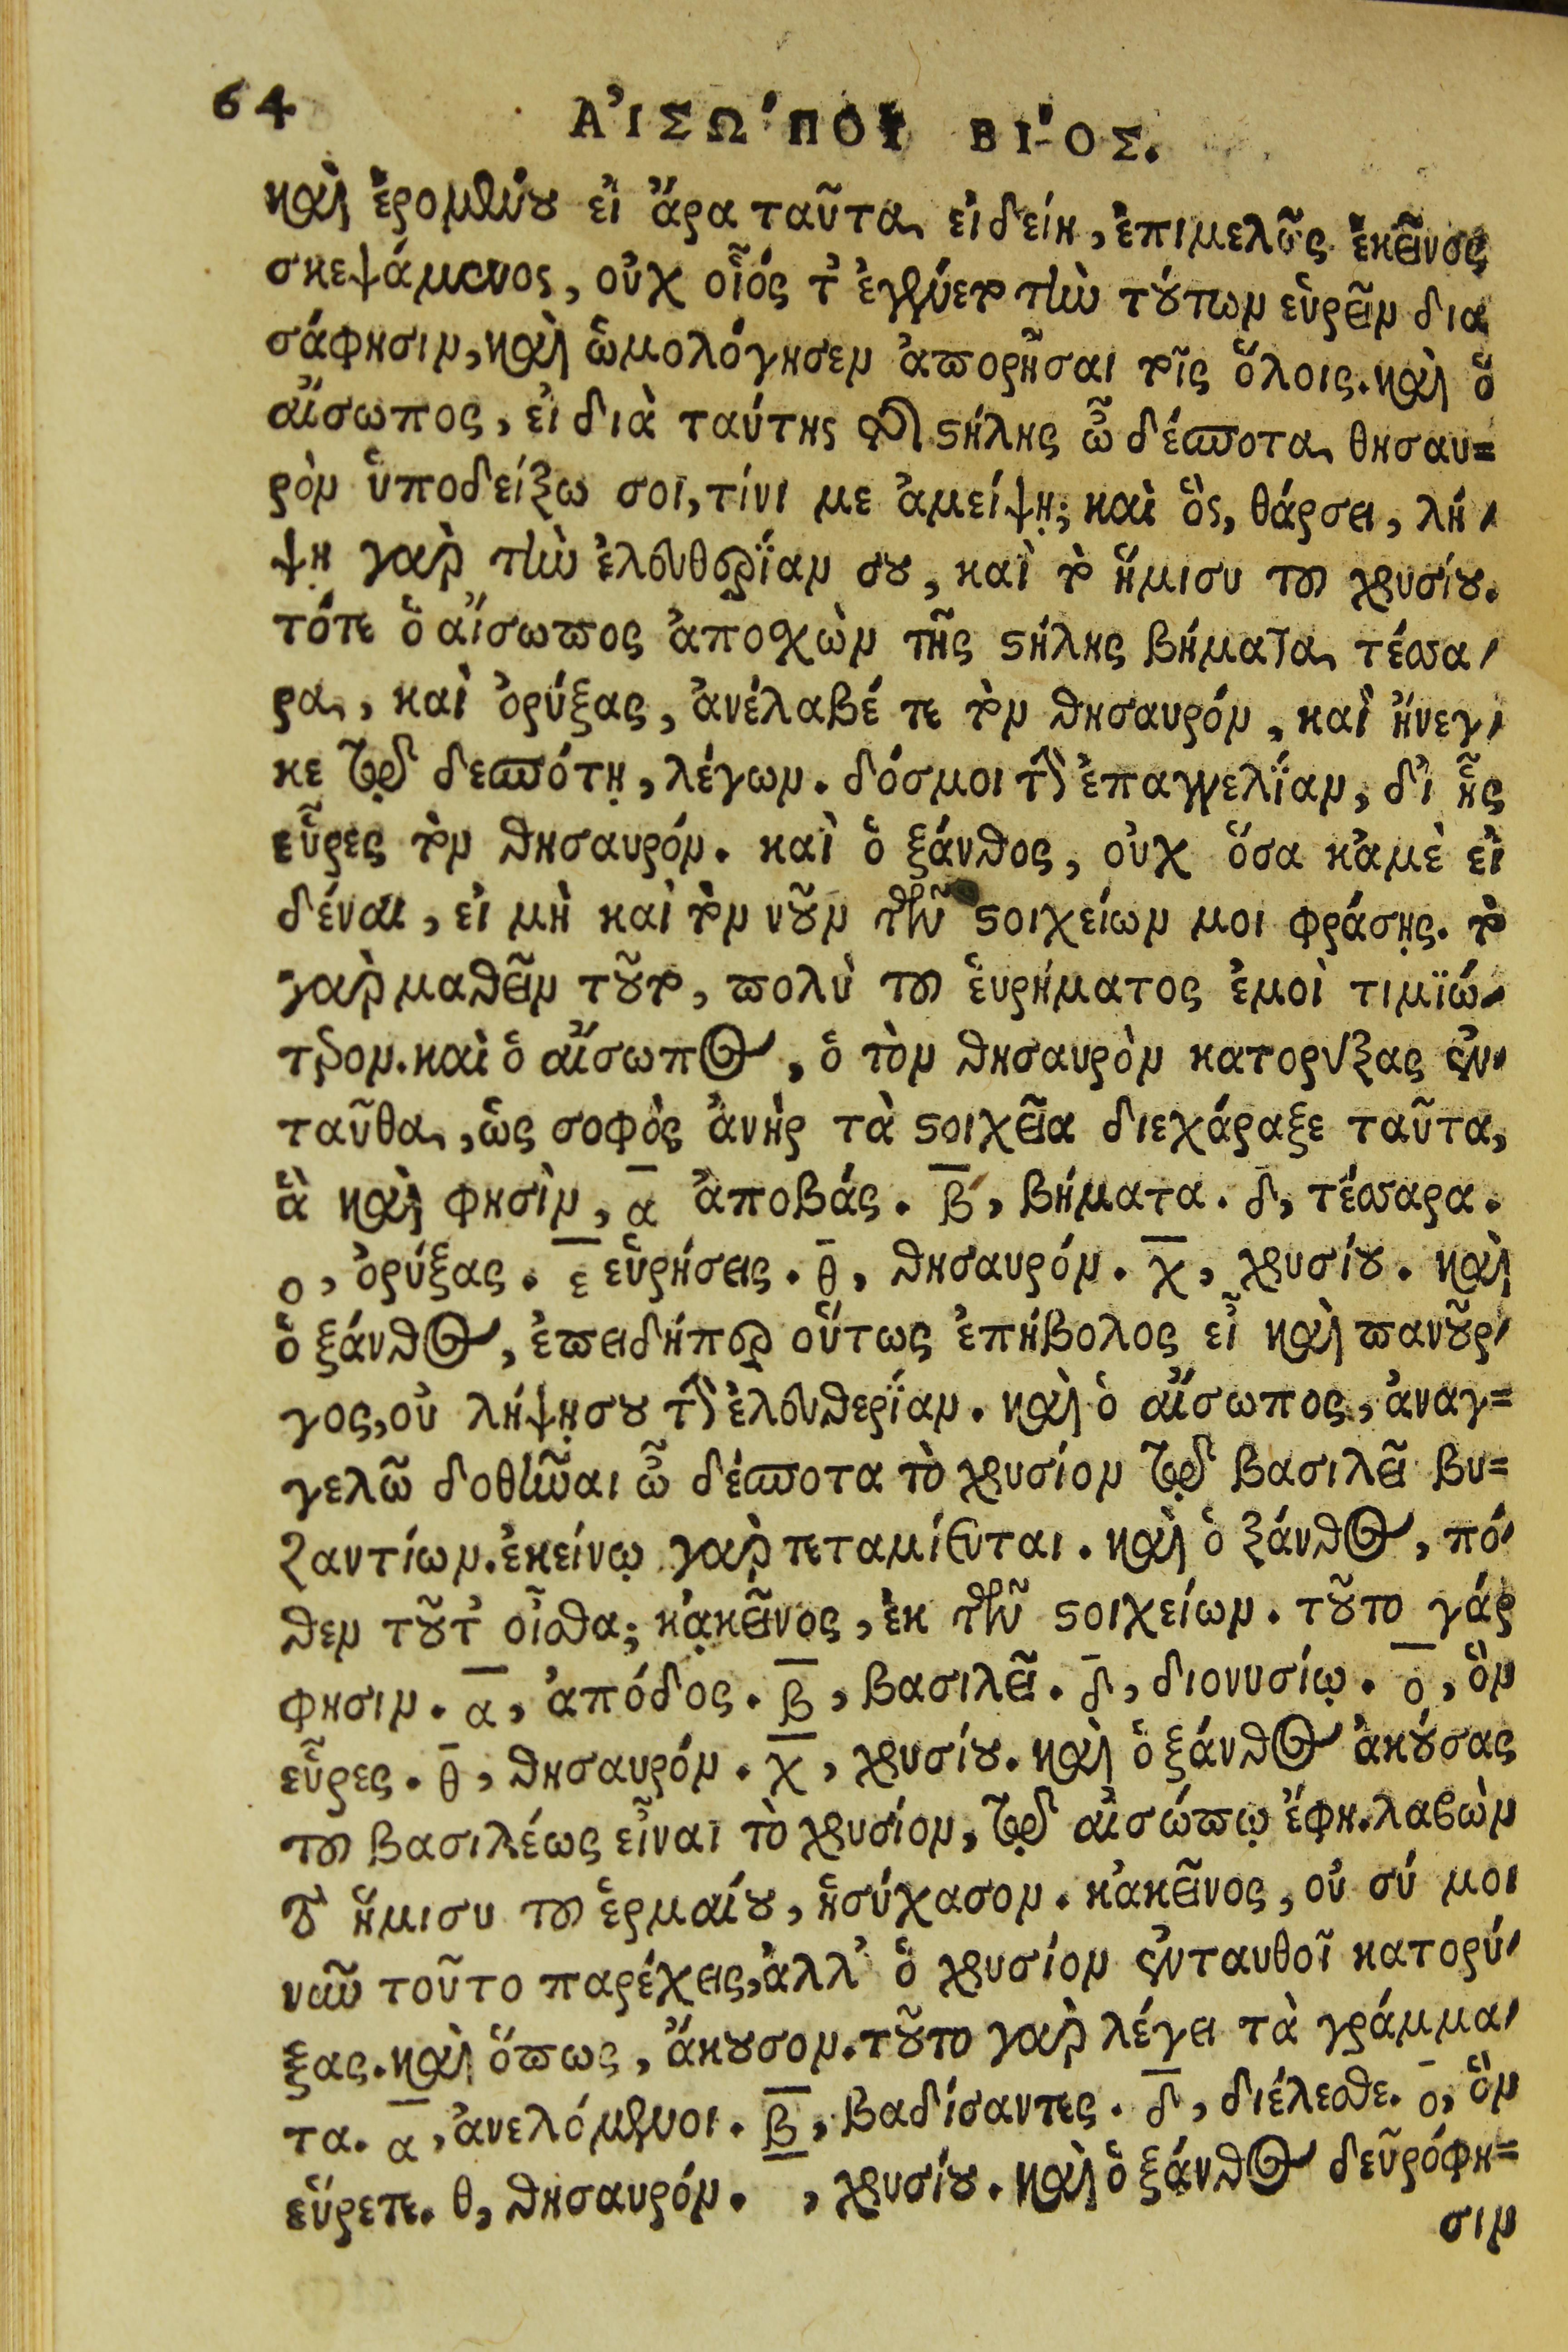 64 ΑἸΣΩ´ΠΟΥ ΒΙ´ΟΣ.
καὶ ἐρομένου εἰ ἄρα ταῦτα εἰδείη, ἐπιμελῶς ἐκεῖνος
σκεψάμενος, οὐχ οἷός τ' ἐγένετο τὴν τούτων εὑρεῖν δια
σάφησιν, καὶ ὡμολόγησεν ἀπορῆσαι τοῖς ὅλοις. καὶ ὁ
αἴσωπος, εἰ διὰ ταύτης τῆς στήλης ὦ δέσποτα θησαυ=
ρὸν ὑποδείξω σοι, τίνι με ἀμείψῃ; καὶ ὃς, θάρσει, λή-
ψῃ γαρ τὴν ἐλευθερΐαν σου, καὶ τὸ ἥμισυ τοῦ χρυσίου.
τότε ὁ αἴσωπος ἀποχὼν τῆς στήλης βήματα τέσσα-
ρα, καὶ ὀρύξας, ἀνέλαβέ τε τὸν θησαυρόν, καὶ ἤνεγ-
κε τῷ δεσπότῃ, λέγων. δόσμοι τὴν ἐπαγγελΐαν, δι' ἧς
εὗρες τὸν θησαυρόν. καὶ ὁ ξάνθος, οὐχ ὅσα κἀμὲ εἰ
δέναι, εἰ μὴ καὶ τὸν νοῦν τῶν στοιχείων μοι φράσῃς. τὸ
γαρ μαθεῖν τοῦτο, πολὺ τοῦ εὑρήματος ἐμοὶ τιμϊώ-
τερον. καὶ ὁ αἴσωπος, ὁ τὸν θησαυρὸν κατορύξας ἐν-
ταῦθα, ὡς σοφὸς ἀνὴρ τὰ στοιχεῖα διεχάραξε ταῦτα,
ἃ καὶ φησὶν, α̅ ἀποβάς. β̅, βήματα. δ̅, τέσσαρα.
ο, ὀρύξας. ε̅ εὑρήσεις. θ̅, θησαυρόν. χ̅, χρυσίου. καὶ
ὁ ξάνθος, ἐπειδήπερ οὕτως ἐπήβολος εἶ καὶ πανοῦρ-
γος, οὐ λήψῃ σου τὴν ἐλευθερΐαν. καὶ ὁ αἴσωπος, ἀναγ=
γελῶ δοθῆναι ὦ δέσποτα τὸ χρυσίον τῷ βασιλεῖ βυ=
ζαντίων. ἐκείνῳ γαρ τεταμίευται. καὶ ὁ ξάνθος, πό-
θεν τοῦτ' οἶσθα; κἀκεῖνος, ἐκ τῶν στοιχείων. τοῦτο γάρ
φησιν. α̅, ἀπόδος. β̅, βασιλεῖ. δ̅, διονυσίῳ. ο̅, ὃν
εὗρες. θ̅, θησαυρόν. χ̅, χρυσίου. καὶ ὁ ξάνθος ἀκούσας
τοῦ βασιλέως εἶναι τὸ χρυσίον, τῷ αἰσώπῳ ἔφη. λαβὼν
τὸ ἥμισυ τοῦ ἑρμαίου, ἡσύχασον. κἀκεῖνος, οὐ σύ μοι
νῦν τοῦτο παρέχεις, ἀλλ' ὁ χρυσίον ἐνταυθοῖ κατορύ-
ξας. καὶ ὅπως, ἄκουσον. τοῦτο γαρ λέγει τὰ γράμμα-
τα. α̅, ἀνελόμενοι. β̅, βαδίσαντες. δ̅, διέλεσθε. ο̅, ὃν
εὕρετε. θ, θησαυρόν. , χρυσίου. καὶ ὁ ξάνθος δεῦρό φη=
σιν